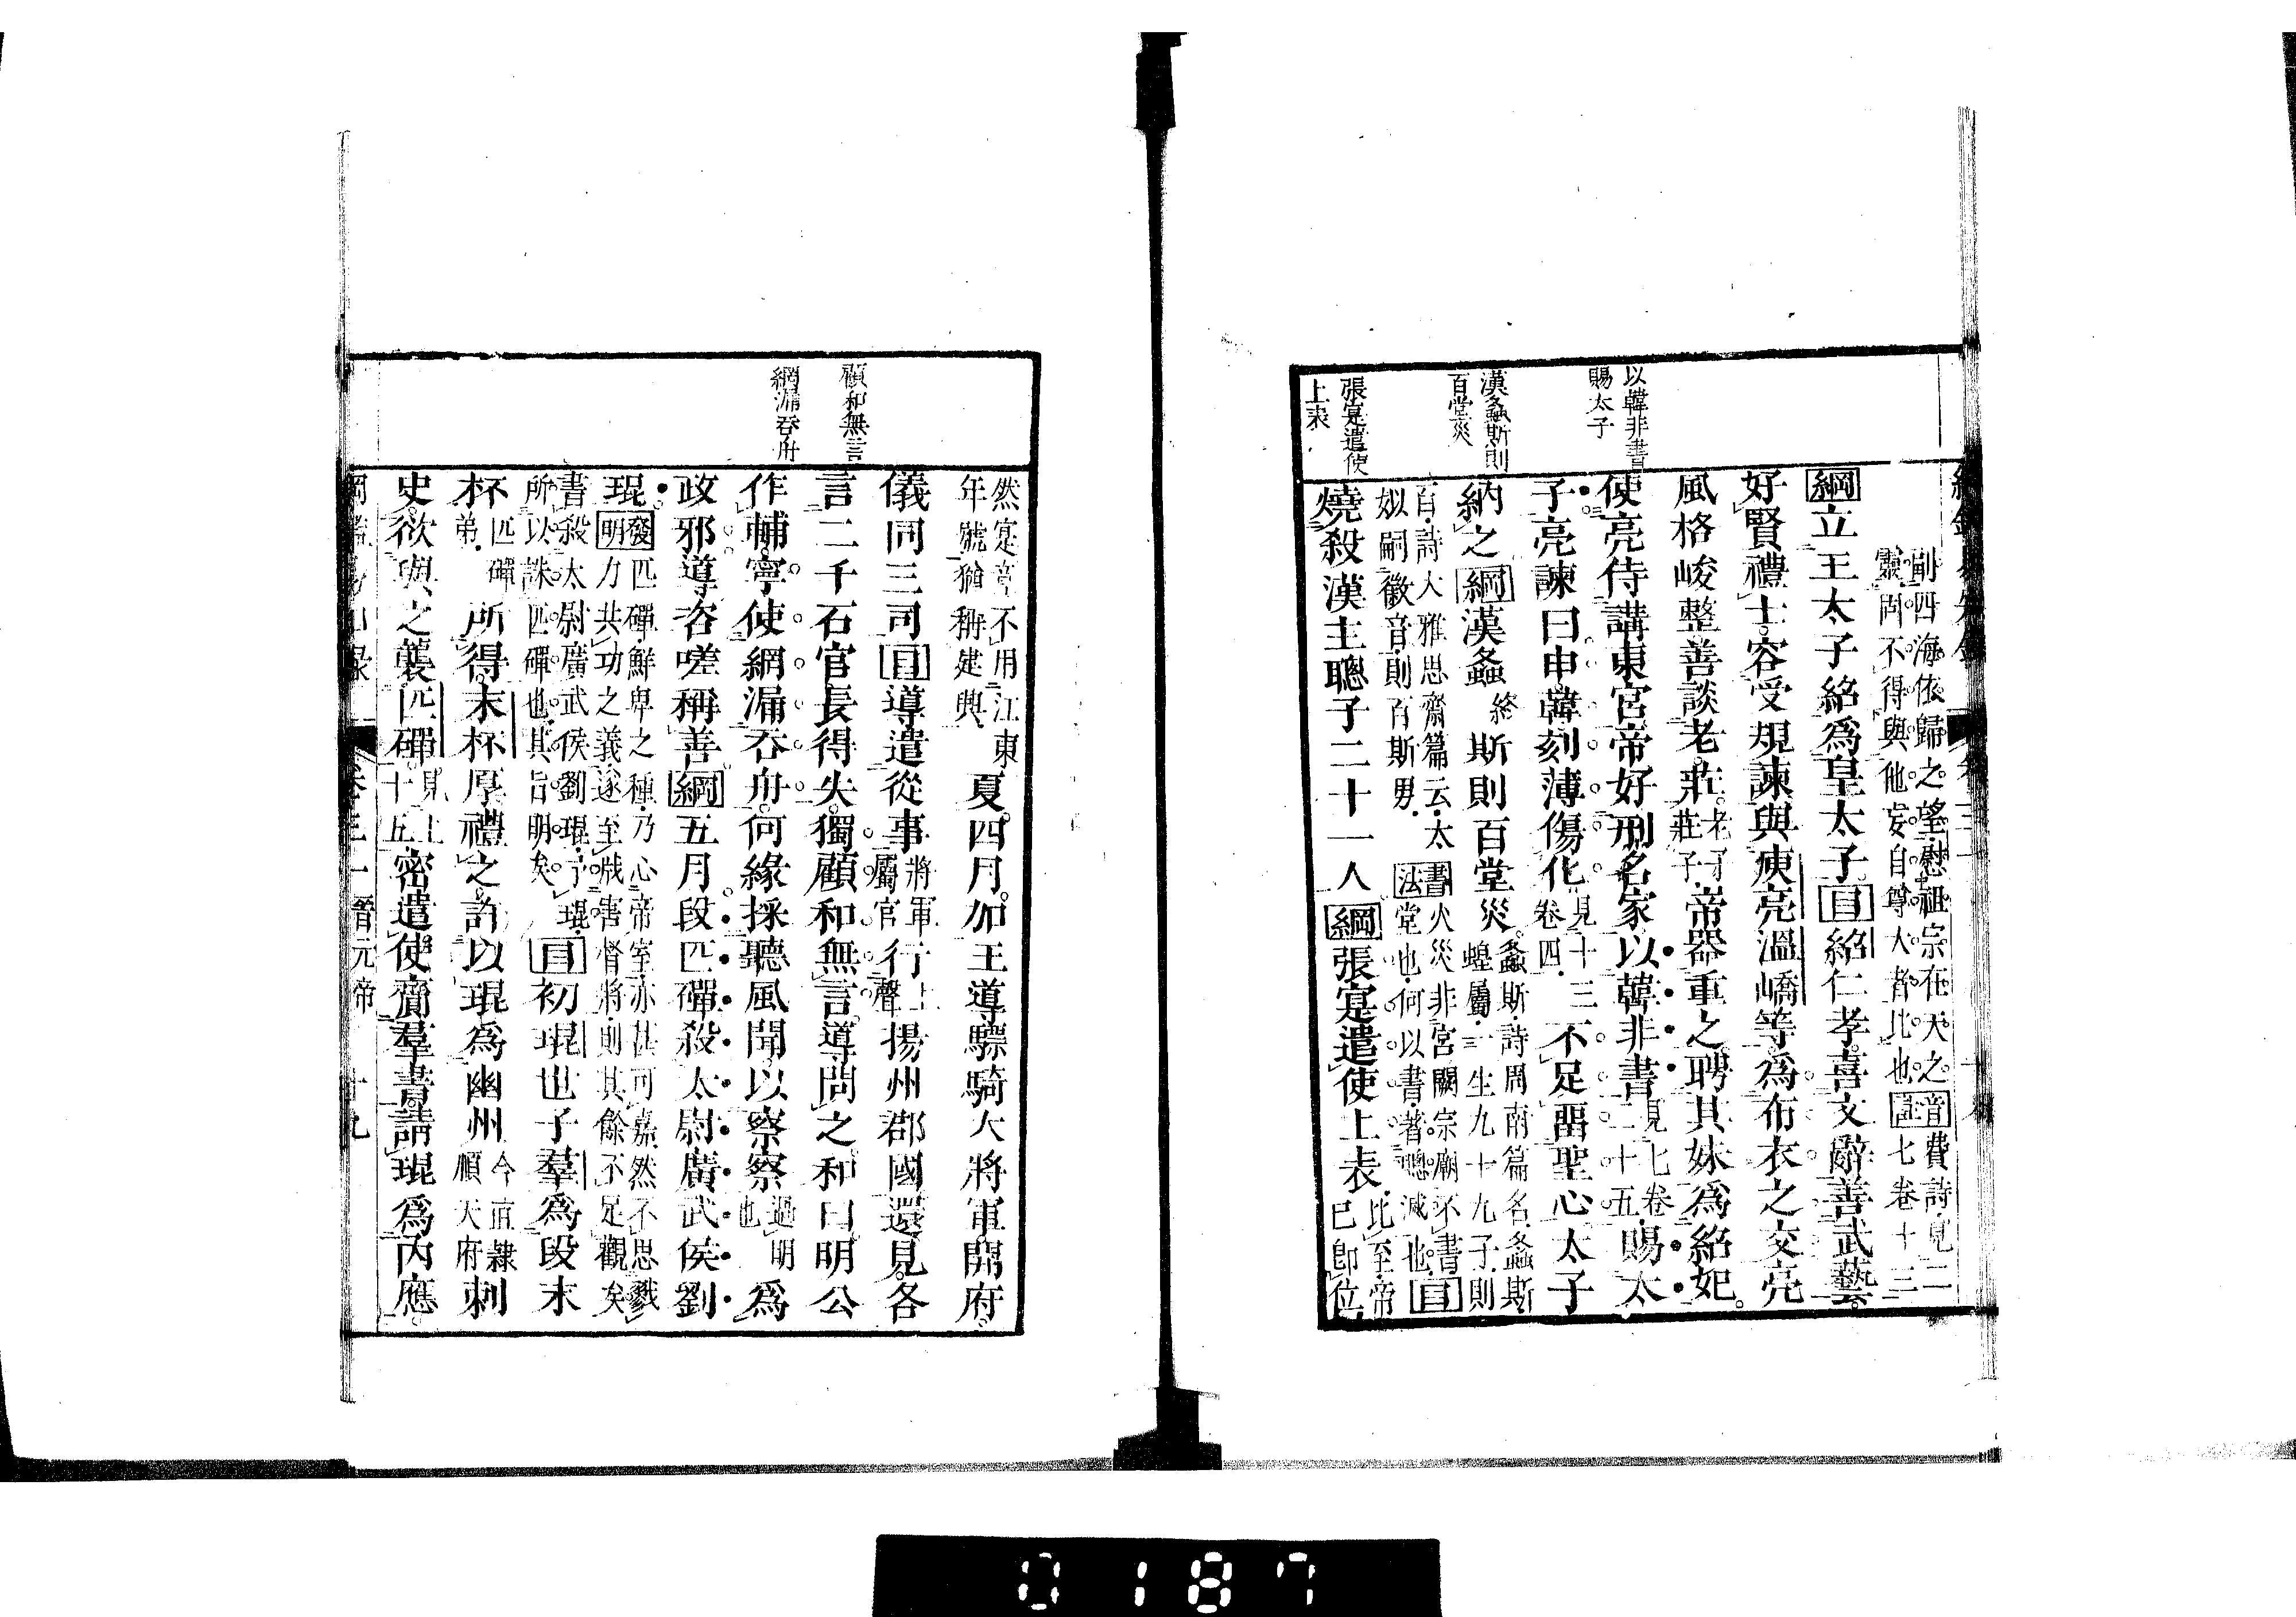 以韓非書
賜太子
漢螽斯則
百堂災
張寔遣使
上表
副四海依歸之望慰祖宗在天之音費詩見二
靈閏不得與他妄自尊大者比也証七卷十三
綱立王太子紹爲皇太子目紹仁孝喜文辭善武藝
好賢禮士容受規諫與庾亮溫嶠等爲布衣之交亮
風格峻整善談老莊老子莊子帝器重之聘其妹爲紹妃
使亮侍講東宮帝好刑名家以韓非書見七卷二十五賜太
子亮諫曰申韓刻薄傷化見十三卷四不足留聖心太子
納之綱漢螽終斯則百堂災螽斯詩周南篇名螽斯蝗屬一生九十九子則
百詩大雅思齋篇云太姒嗣徽音則百斯男書法火災非宮闕宗廟不書堂也何以書著聰滅也目
燒殺漢主聰子二十一人綱張寔遣使上表比至帝已卽位
顧和無言
網漏吞舟
然寔竟不用江東年號猶稱建興夏四月加王導驃騎大將軍開府
儀同三司目導遣從事將軍屬官行上聲揚州郡國還見各
言二千石官長得失獨顧和無言導問之和曰明公
作輔寧使網漏吞舟何緣採聽風聞以察察過明也爲
政邪導咨嗟稱善綱五月段匹磾殺太尉廣武侯劉
琨發明匹磾鮮卑之種乃心帝室亦甚可嘉然不思戮力共功之義遂至戕害督將則其餘不足觀矣
書殺太尉廣武侯劉琨予琨所以誅匹磾也其旨明矣目初琨世子羣爲段末
杯匹磾弟所得末杯厚禮之許以琨爲幽州今直隸順天府刺
史欲與之襲匹磾見上十五密遣使齎羣書請琨爲內應
卷三十一晉元帝 十九
0187